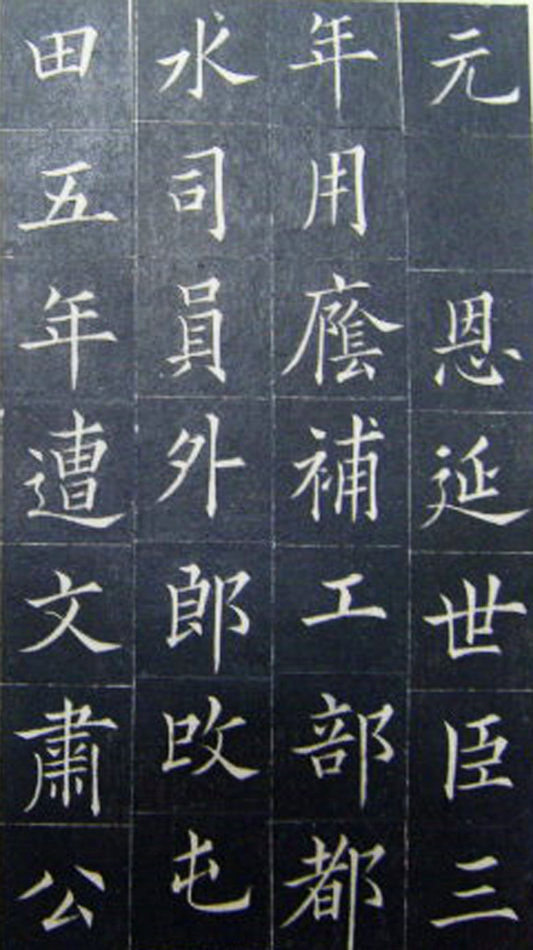 元 恩延世臣三
年用廕補工部都
水司員外郎改屯
田五年遭文肅公